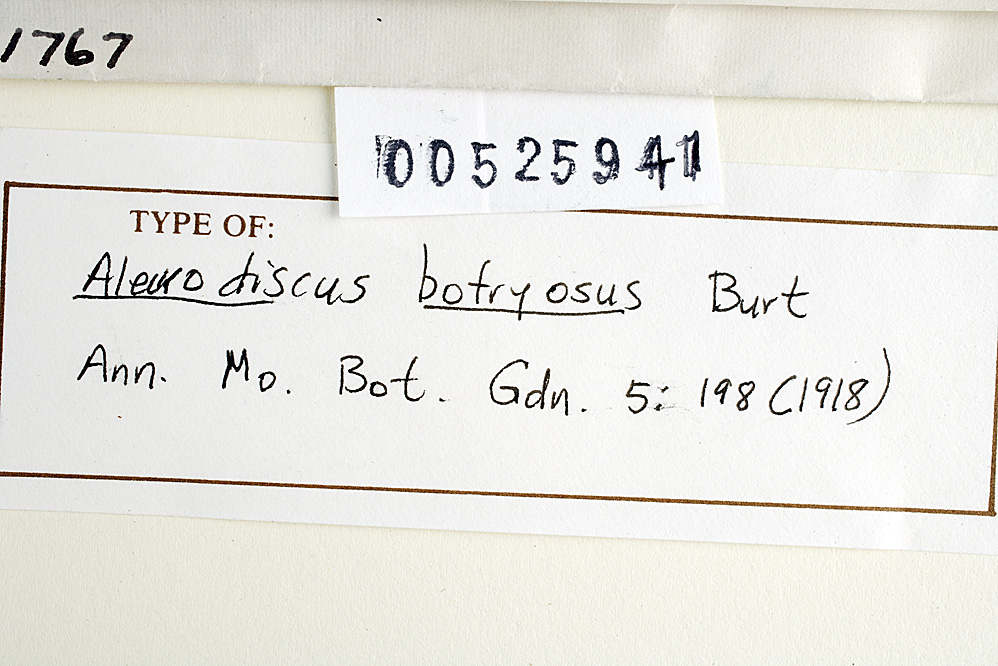 1767
00525941
TYPE OF:
Aleurodiscus botryosus Burt
Ann. Mo. Bot. Gdn. 5: 198 (1918)